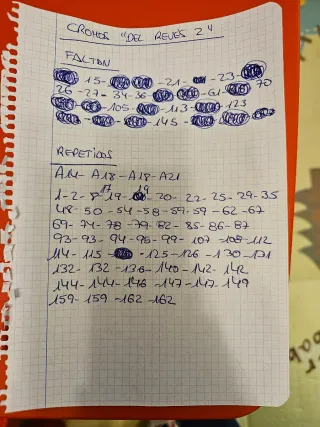 CROMOS "DEL REVÉS 2"
FALTAN
15 - 21 - 23 - 70
26 - 27 - 34 - 36 - 61
105 - 113 - 123
145
REPETIDOS
A14 - A18 - A18 - A21
17 19
1 - 2 - 8 - 19 - 20 - 22 - 25 - 29 - 35
48 - 50 - 54 - 58 - 59 - 59 - 62 - 67
69 - 74 - 78 - 79 - 82 - 85 - 86 - 87
93 - 93 - 94 - 95 - 99 - 107 - 108 - 112
114 - 115 - 125 - 126 - 130 - 131
132 - 132 - 136 - 140 - 142 - 142
144 - 144 - 146 - 147 - 147 - 149
159 - 159 - 162 - 162